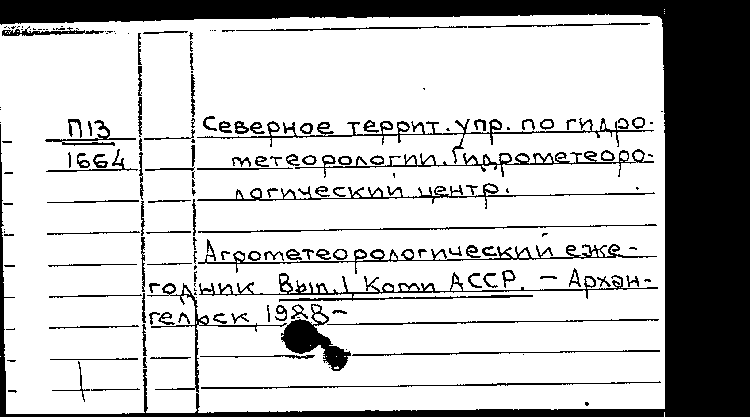 П13
1664
Северное террит. упр. по гидро-
метеорологии. Гидрометеоро-
логический центр.
Агрометеорологический еже-
годник. Вып.1, Коми АССР. – Архан-
гельск, 1988–